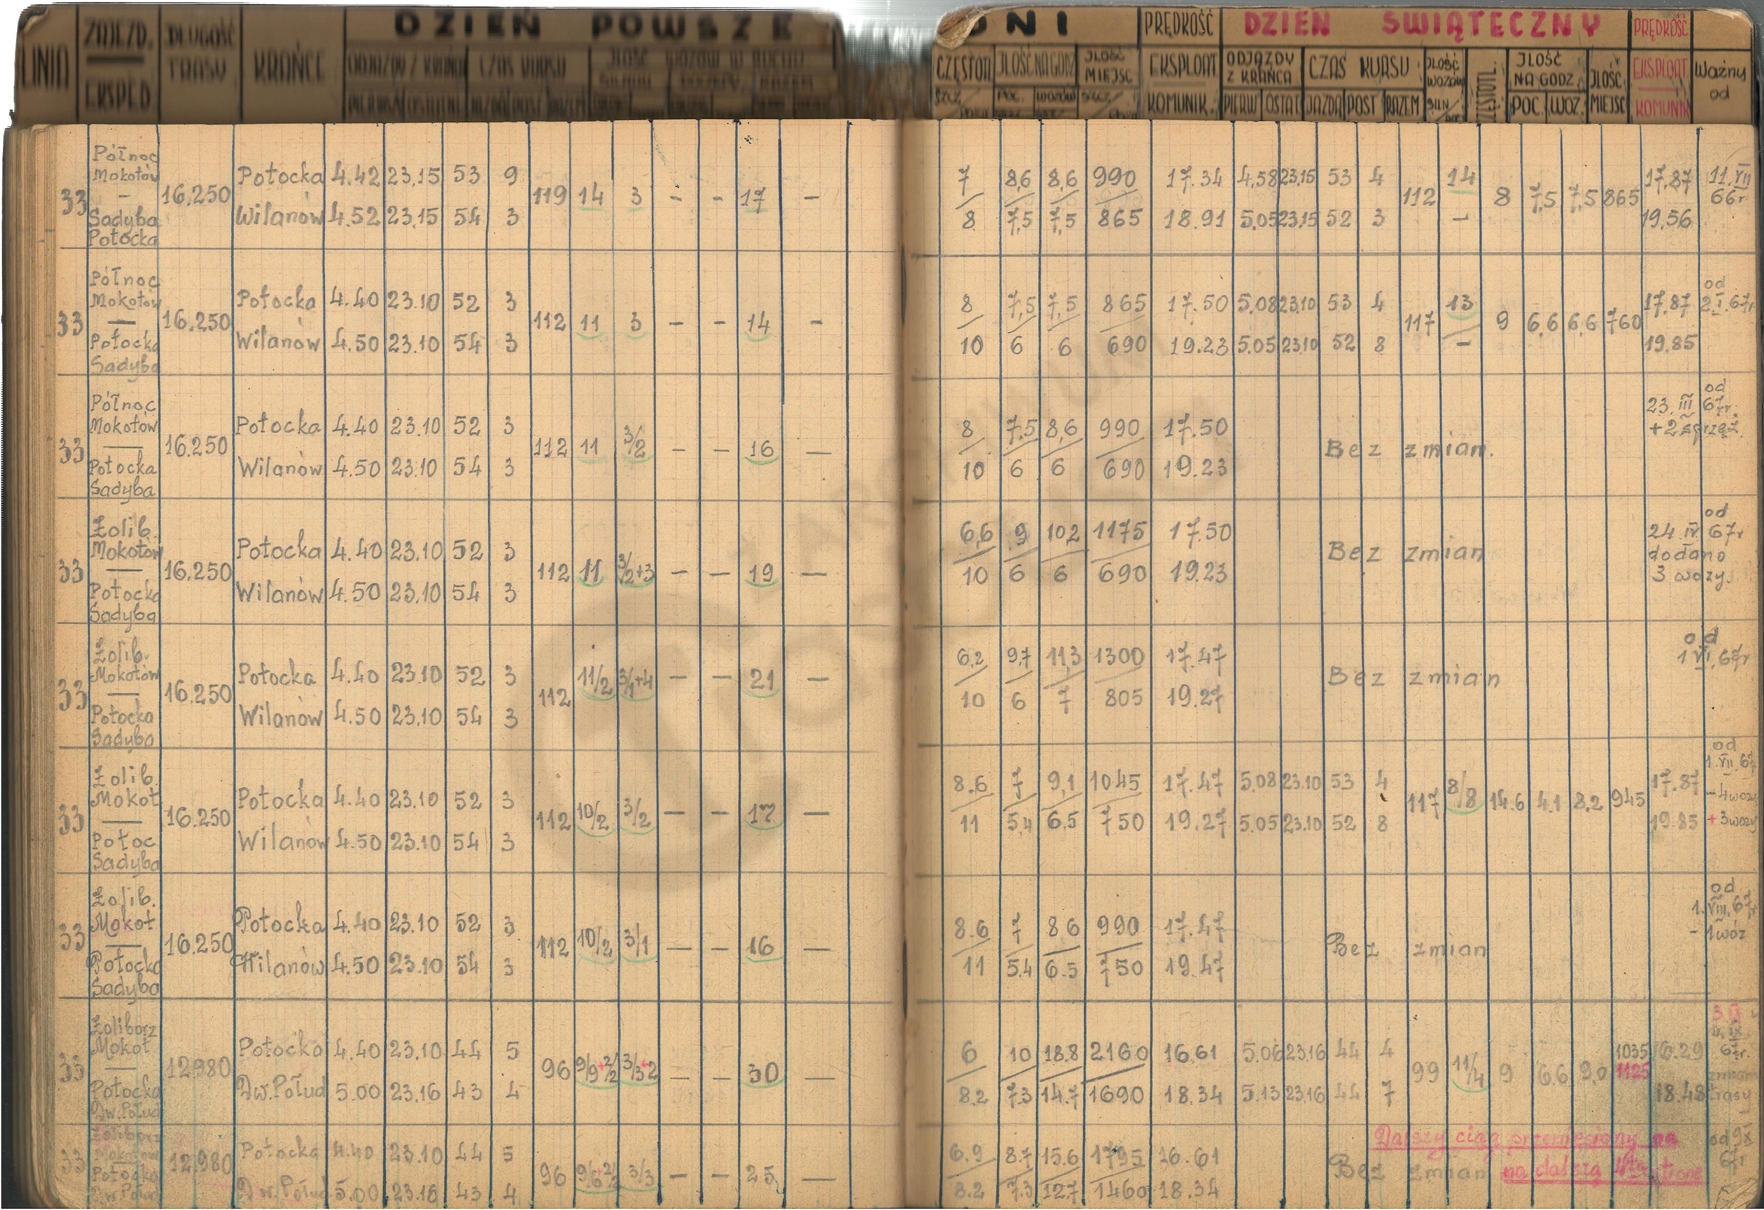 DZIEŃ POWSZEDNI PRĘDKOŚĆ DZIEŃ ŚWIĄTECZNY PRĘDKOŚĆ
LINIA ZAJEZD. EKSPED DŁUGOŚĆ TRASY KRAŃCE ODJAZDY Z KRAŃCA CZAS KURSU JLOŚĆ WOZÓW W RUCHU CZĘSTOTL JLOŚĆ NA GODZ JLOŚĆ MIEJSC EKSPLOAT KOMUNIK. ODJAZDY Z KRAŃCA CZAS KURSU JLOŚĆ WOZÓW JLOŚĆ NA GODZ JLOŚĆ MIEJSC EKSPLOAT KOMUNIK Ważny od
PIERW OSTAT JAZDA POST RAZEM POC. WOZ.
33 Północ Mokotów – Sadyba Potocka 16.250
Potocka 4.42 23,15 53 9 119 14 3 – – 17 – 7 8,6 8,6 990 17.34 4,58 23,15 53 4 112 14 8 7,5 7,5 865 17,87 11.VII 66r
Wilanów 4.52 23,15 54 3 8 7,5 7,5 865 18.91 5,05 23,15 52 3 – 19,56
33 Północ Mokotów – Potocka Sadyba 16.250
Potocka 4.40 23.10 52 3 112 11 3 – – 14 – 8 7,5 7,5 865 17.50 5,08 23,10 53 4 117 13 9 6,6 6,6 760 17,87 od 2.I.67r
Wilanów 4.50 23.10 54 3 10 6 6 690 19.23 5,05 23,10 52 8 – 19.85
33 Północ Mokotów – Potocka Sadyba 16.250
Potocka 4.40 23.10 52 3 112 11 3/2 – – 16 – 8 7,5 8,6 990 17.50 Bez zmian. od 23.III 67r.
Wilanów 4.50 23.10 54 3 10 6 6 690 19.23
33 Żolib. Mokotów – Potocka Sadyba 16.250
Potocka 4.40 23.10 52 3 112 11 3/2+3 – – 19 – 6,6 9 10,2 1175 17.50 Bez zmian od 24.IV.67r dodano 3 wozy.
Wilanów 4.50 23.10 54 3 10 6 6 690 19.23
33 Żolib. Mokotów – Potocka Sadyba 16.250
Potocka 4.40 23.10 52 3 112 11/2 3/1+4 – – 21 – 6,2 9,7 11,3 1300 17.47 Bez zmian od 1 VI,67r
Wilanów 4.50 23.10 54 3 10 6 7 805 19.27
33 Żolib. Mokot – Potoc Sadyba 16.250
Potocka 4.40 23.10 52 3 112 10/2 3/2 – – 17 – 8.6 7 9,1 1045 17.47 5,08 23.10 53 4 117 8/8 14.6 4.1 8,2 945 17.87 od 1.VII.67 -4wozy
Wilanów 4.50 23.10 54 3 11 5,4 6.5 750 19.27 5.05 23.10 52 8 19.85 +3wozy
33 Żolib. Mokot – Potocka Sadyba 16.250
Potocka 4.40 23.10 52 3 112 10/2 3/1 – – 16 – 8.6 7 8 6 990 17.47 Bez zmian od 1.VIII.67r -1wóz
Wilanów 4.50 23.10 54 3 11 5.4 6.5 750 19.47
33 Żoliborz Mokot – Potocka Dw.Połud 12.980
Potocka 4.40 23.10 44 5 96 9/9+2/2 3/3+2 – – 30 – 6 10 18.8 2160 16,61 5,06 23,16 44 4 99 11/4 9 6,6 9,0 1035 1125 16.29 zmiana trasy
Dw.Połud 5.00 23.16 43 4 8.2 7.3 14.7 1690 18.34 5.13 23,16 44 7 18.48
33 Żoliborz Mokotów Potocka Dw.Połud 12.980
Potocka 4.40 23.10 44 5 96 9/6+2/2 3/3 – – 25 – 6,9 8.7 15.6 1795 16.61 Bez zmian
Dw.Połud 5.00 23.16 43 4 8.2 7.3 12.7 1460 18.34
Dalszy ciąg przeniesiony na
na dalszą